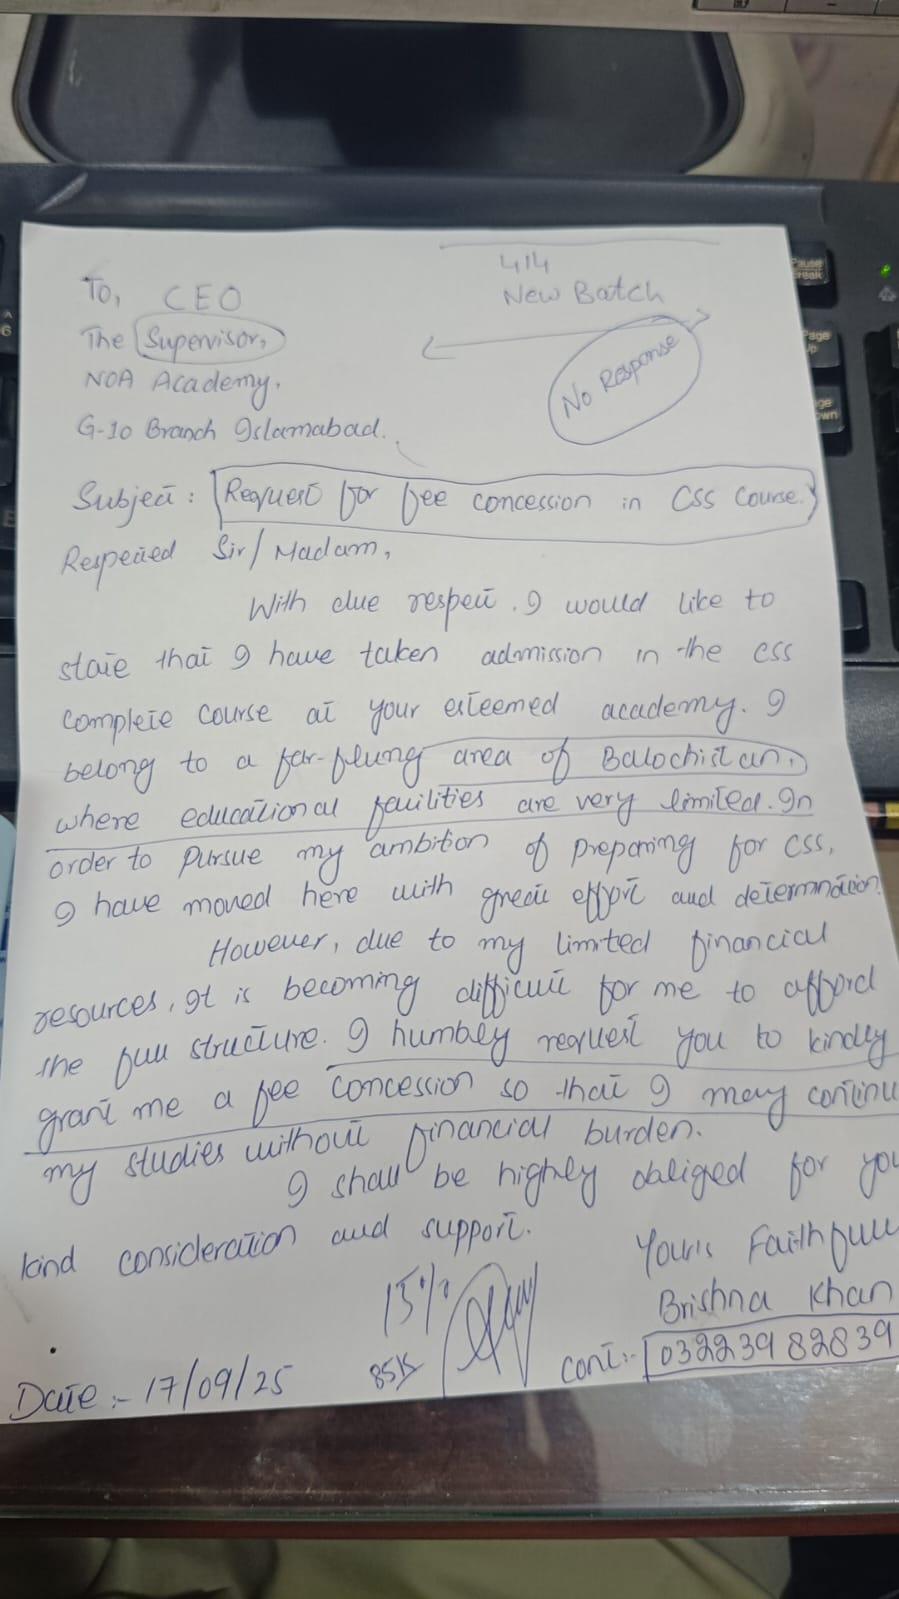 414
New Batch
No Response
To, CEO
The Supervisor,
NOA Academy,
G-10 Branch Islamabad.
Subject: Request for fee concession in CSS Course.
Respected Sir/Madam,
With due respect. I would like to
state that I have taken admission in the css
complete course at your esteemed academy. I
belong to a far-flung area of Balochistan,
where educational facilities are very limited. In
order to pursue my ambition of preparing for css,
I have moved here with great effort and determination.
However, due to my limited financial
resources, It is becoming difficult for me to afford
the full structure. I humbly request you to kindly
grant me a fee concession so that I may continu
my studies without financial burden.
I shall be highly obliged for you
kind consideration and support.
Yours Faithfull
Brishna Khan
15%
Cont:- 03223982839
Date :- 17/09/25